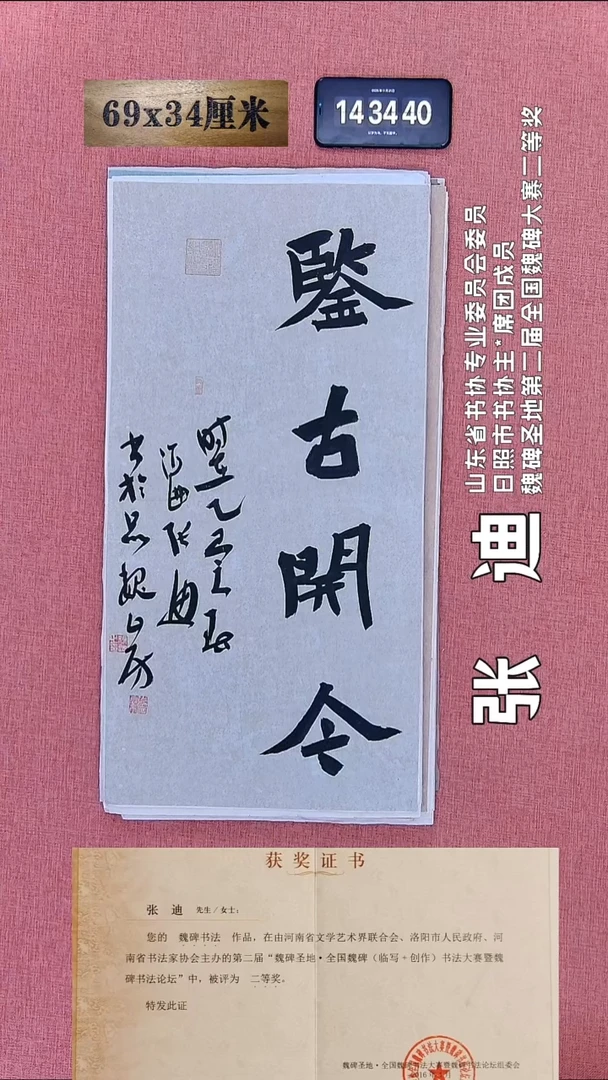 69x34厘米
14 34 40
鑒古開今
時在乙巳之春
海曲張迪
書於昌魏山房
山东省书协专业委员会委员
日照市书协主*席团成员
魏碑圣地第二届全国魏碑大赛二等奖
张 迪
获奖证书
张 迪 先生/女士：
您的 魏碑书法 作品，在由河南省文学艺术界联合会、洛阳市人民政府、河
南省书法家协会主办的第二届“魏碑圣地·全国魏碑（临写+创作）书法大赛暨魏
碑书法论坛”中，被评为 二等奖。
特发此证
魏碑圣地·全国魏碑书法大赛暨魏碑书法论坛组委会